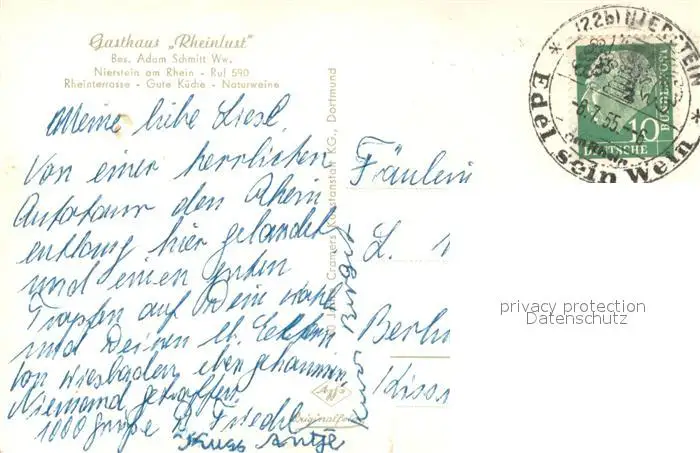 Gasthaus „Rheinlust"
Bes. Adam Schmitt Ww.
Nierstein am Rhein - Ruf 590
Rheinterrasse - Gute Küche - Naturweine
Meine liebe Liesl.
Von einer herrlichen
Autotour den Rhein
entlang hier gelandet
und einen guten
Tropfen auf Dein Wohl
und Deinen lb. Eltern
von Wiesbaden
Niemand getroffen.
1000 Grüße D. Friedl
Kuss Antje
Cramers Kunstanstalt KG., Dortmund
Fräulein
L.
Berlin
(22b) NIERSTEIN
55.-
Edel sein Wein
10
DEUTSCHE
BUNDESPOST
privacy protection
Datenschutz